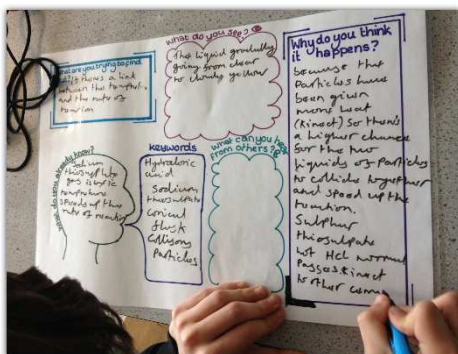 What are you trying to find
if there's a link
between the
and the rate of
What do you see?
The liquid gradually
going from clear
to cloudy yellow
Why do you think
it happens?
because the
Particles have
been given
more heat
(kinect) so there's
a higher chance
for the two
liquids of Particles
to collide together
and speed up the
reaction.
Sulphur
thiosulpate
hot HCL normal
Passes kinect
to other
What do you already know?
speeds up the
rate of reaction
keywords
Hydraloric
acid
Sodium
thiosulpate
conical
flask
Particles
What can you hear
from others?